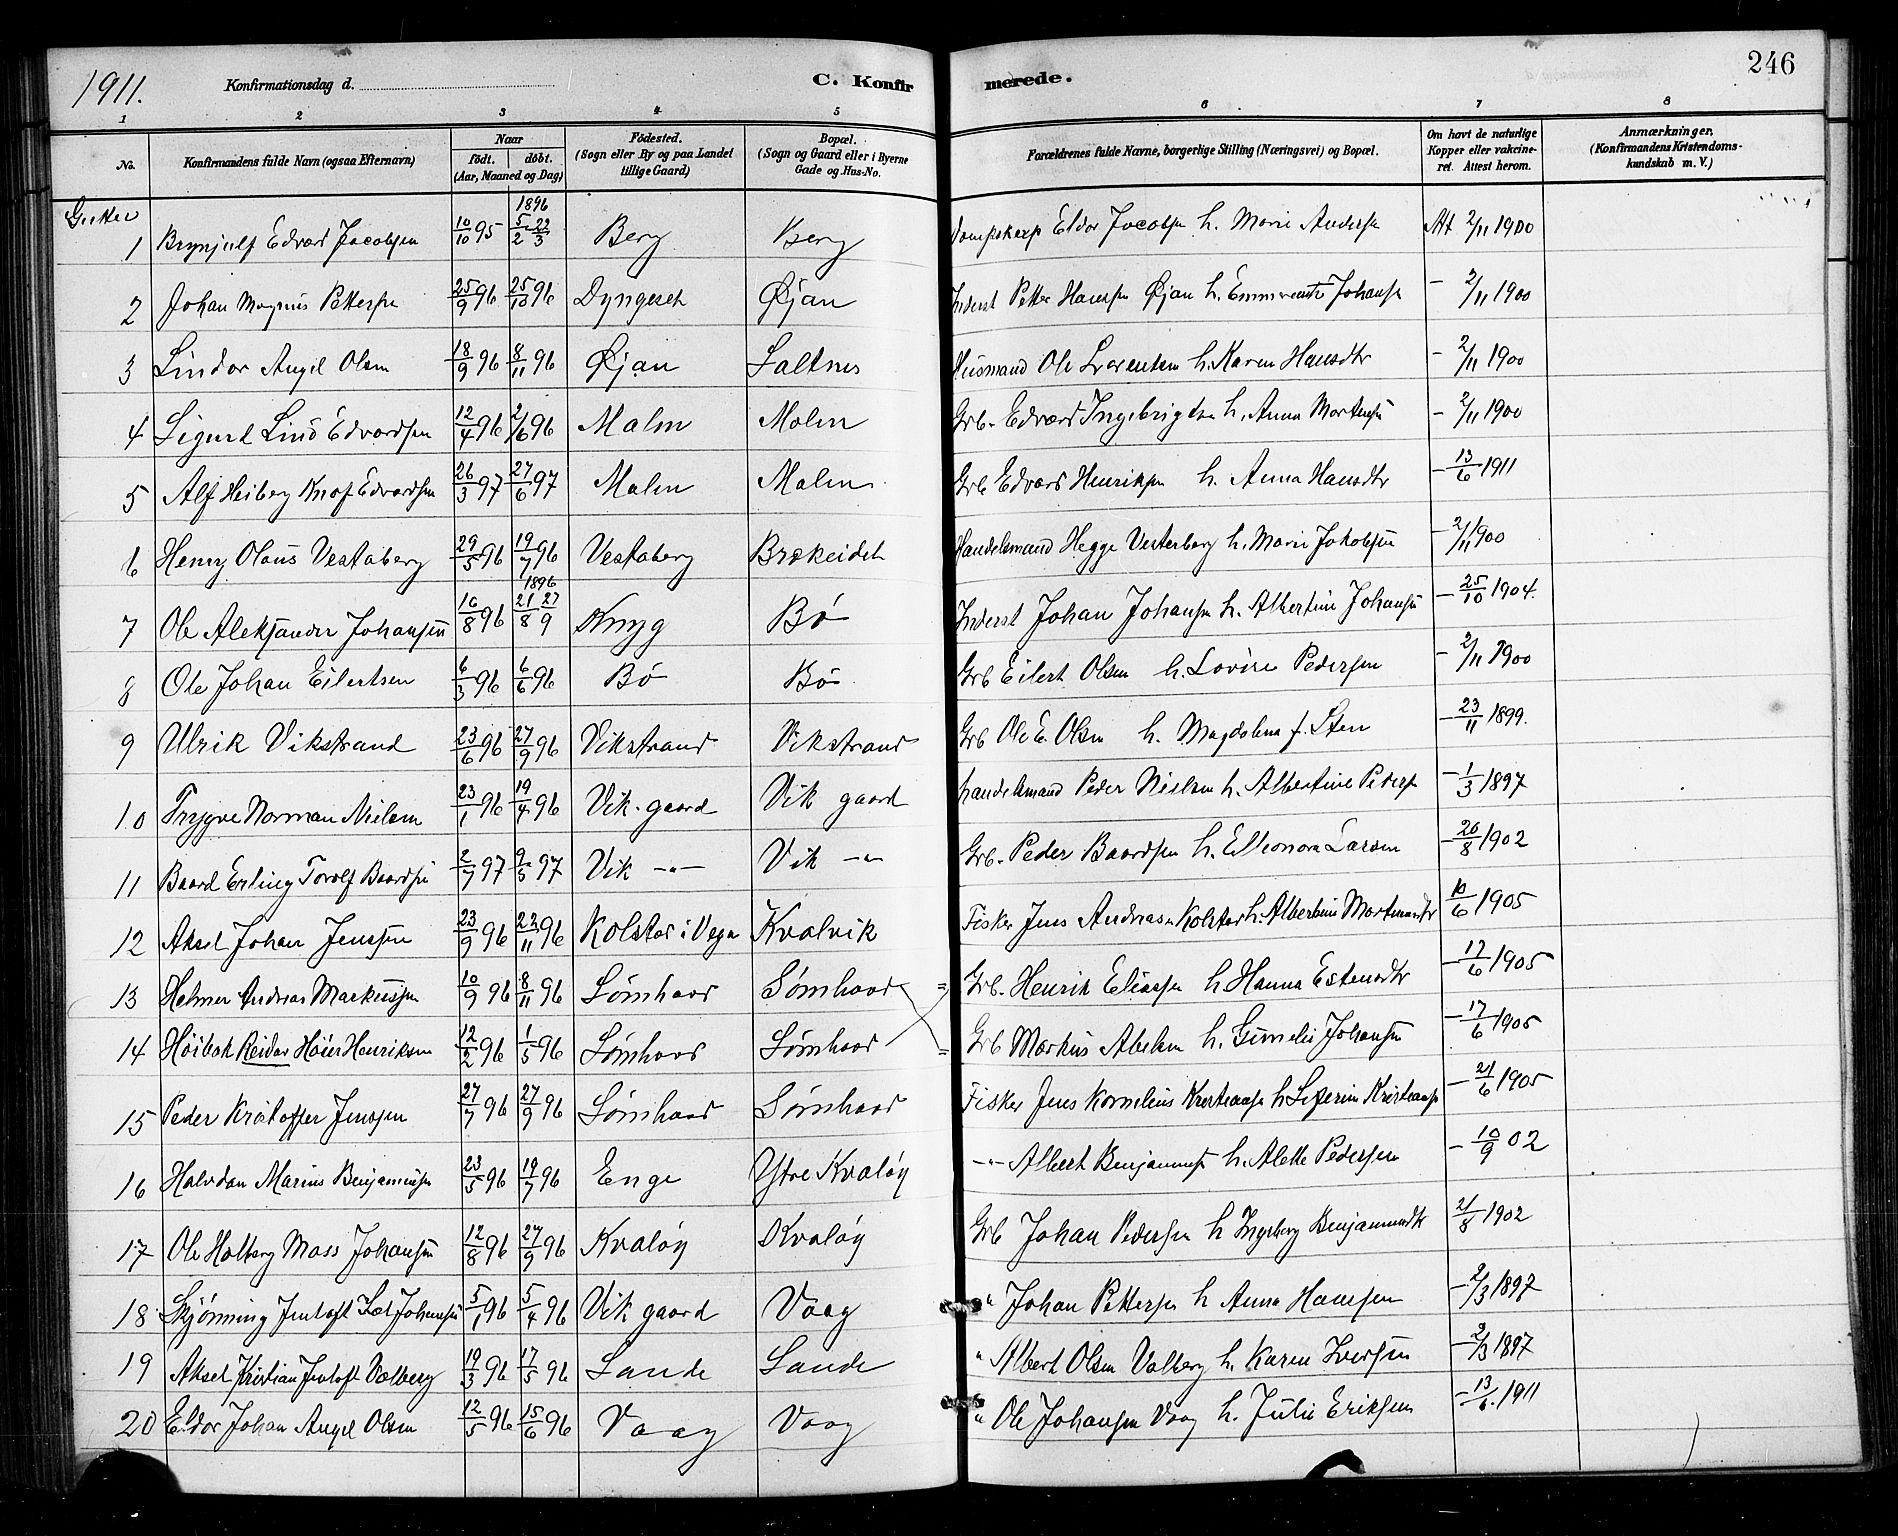 1911.
Konfirmationsdag d.
C. Konfirmerede.
246
1 2 3 4 5 6 7 8
No.
Konfirmandens fulde Navn (ogsaa Efternavn)
Naar
født. døbt.
(Aar, Maaned og Dag)
Fødested.
(Sogn eller By og paa Landet
tillige Gaard)
Bopæl.
(Sogn og Gaard eller i Byerne
Gade og Hus-No.
Forældrenes fulde Navne, borgerlige Stilling (Næringsvei) og Bopæl.
Om havt de naturlige
Kopper eller vakcine-
ret. Attest herom.
Anmærkninger,
(Konfirmandens Kristendoms-
kundskab m. V.)
Gutter
1 Brynjulf Edvard Jacobsen 10/10 95 1896 5/2 22/3 Berg Berg Eldor Jacobsen h. Marie Andersn Att 2/11 1900
2 Johan Magnus Pettersn 25/9 96 25/10 96 Dyngeset Øjan Inderst Petter Hansen Øjan h. Johansn - 2/11 1900
3 Lindor Angel Olsen 18/9 96 8/11 96 Øjan Saltnes Husmand Ole Lorentsen h. Karen Hansdtr - 2/11 1900
4 Sigurd Lind Edvardsen 12/4 96 2/6 96 Malm Malm Grb. Edvard Ingebrigtsn h. Anna Mortensen - 2/11 1900
5 Alf Heiberg Knof Edvardsen 26/3 97 27/6 97 Malm Malm Grb Edvard Henriksen h. Anna Hansdtr - 13/6 1911
6 Henry Olaus Vestaberg 29/5 96 19/7 96 Vestaberg Brækeidet Handelsmand Hegge Vesterberg h. Marie Jakobsen - 2/11 1900
7 Ole Aleksander Johansen 16/8 96 1896 21/8 27/9 Knyg Bø Inderst Johan Johansen h. Albertine Johansen - 25/10 1904.
8 Ole Johan Eilertsen 6/3 96 6/6 96 Bø Bø Grb Eilert Olsen h. Lovise Pedersen - 2/11 1900
9 Ulrik Vikstrand 23/6 96 27/9 96 Vikstrand Vikstrand Grb Ole E. Olsen h. Magdalena f. Sten - 23/11 1899.
10 Trygve Norman Nielsen 23/1 96 19/4 96 Vik. gaard Vik gaard handelsmand Peder Nielsen h. Albertine Pedersn - 1/3 1897
11 Baard Erling Torolf Baardsen 2/7 97 9/5 97 Vik -"- Vik -"- Grb. Peder Baardsen h. Elleonora Larsen - 26/8 1902
12 Aksel Johan Jenssen 23/9 96 22/11 96 Kolstad i Vega Kvalvik Fisker Jens Andreas Kolstad h. Albertine Mortensdtr 10/6 1905
13 Helmer Andreas Markussen 10/9 96 8/11 96 Sømhovd Sømhovd = Grb. Henrik Eliassen h Hanna Estensdtr - 17/6 1905
14 Høibak Reidar Høier Henriksen 12/2 96 1/5 96 Sømhovd Sømhovd = Grb Markus Abelsen h. Johansen - 17/6 1905
15 Peder Kristoffer Jenssen 27/7 96 27/9 96 Sømhovd Sømhovd Fisker Jens Kornelius Kristiansn h Seferine Kristiansn - 21/6 1905
16 Halvdan Marius Benjaminsen 23/5 96 19/7 96 Enge Ytre Kvaløy -"- Albert Benjaminsn h. Alette Pedersen - 10/9 02
17 Ole Holberg Mass Johansen 12/8 96 27/9 96 Kvaløy Kvaløy Grb Johan Pedersen h Ingeborg Benjaminsdtr 21/8 1902
18 Skjønning Jentoft Johansen 5/1 96 5/4 96 Vik gaard Vaag " Johan Pettersen h Anna Hansen - 2/3 1897
19 Aksel Kristian Jentoft Valberg 19/3 96 17/5 96 Sande Sande " Albert Olsen Valberg h. Karen Iversen - 2/3 1897
20 Eldor Johan Angel Olsen 12/5 96 15/6 96 Vaag Vaag " Ole Johansen Vaag h. Julie Eriksen - 13/6. 1911